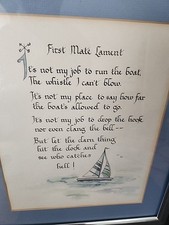 First Mate Lament
It's not my job to run the boat,
The whistle I can't blow.
It's not my place to say how far
the boat's allowed to go.
It's not my job to drop the hook
nor even clang the bell--
But let the darn thing
hit the dock and
see who catches
hell!